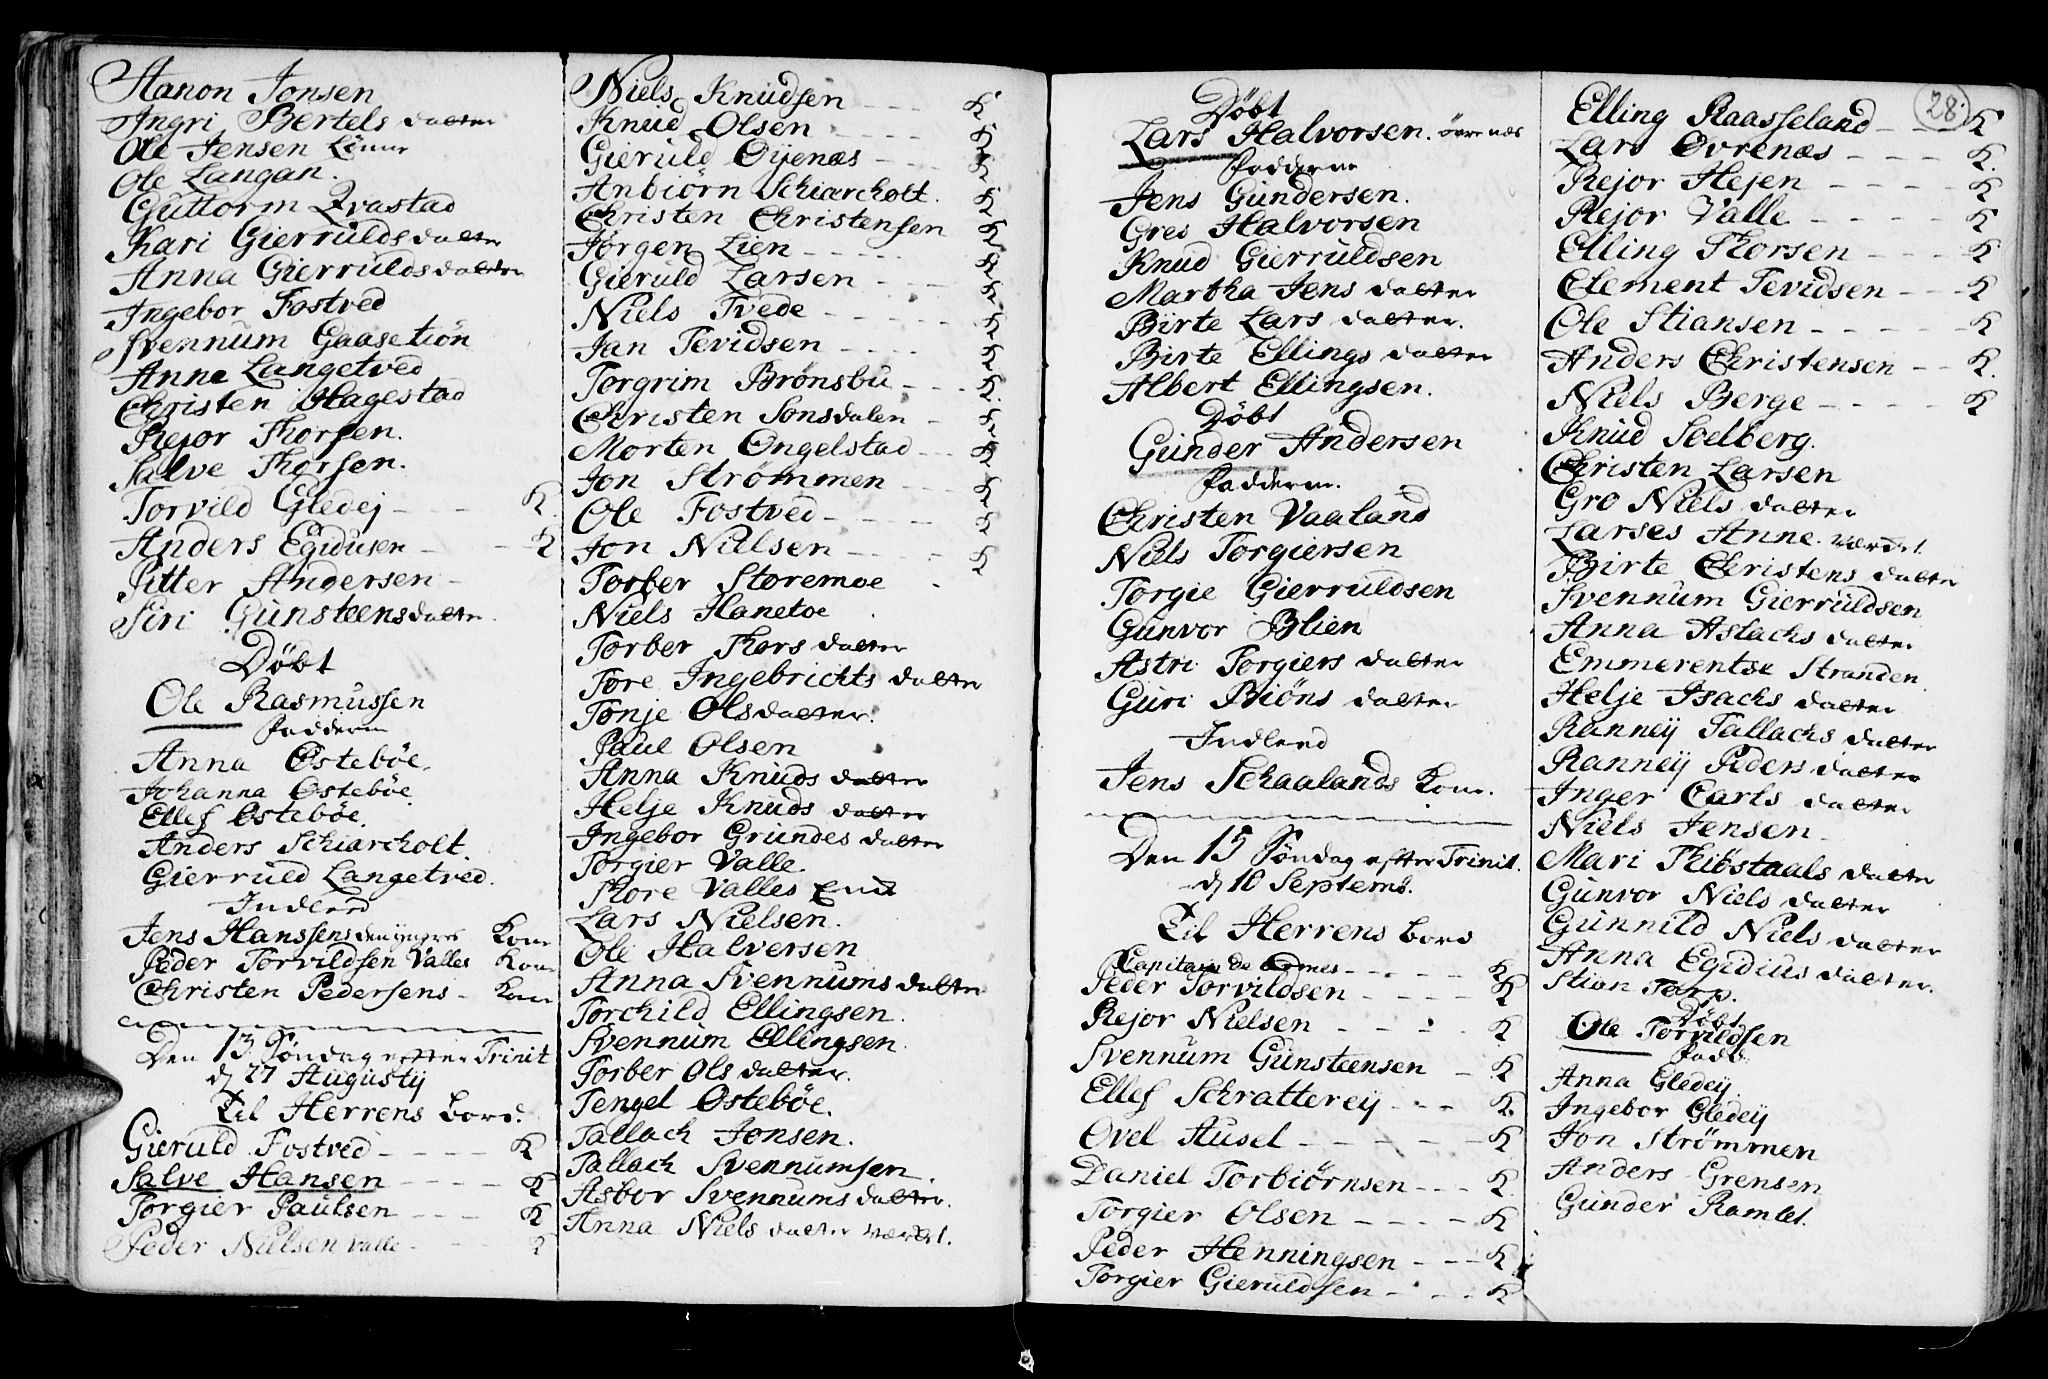 Hanon Jonsen
Ingri Bertels datter
Ole Jensen
Ole Langan.
Guttorm Qvastad
Kari Gierrulds datter
Anna Gierrulds datter
Ingebor Fostved
Svennum Gaasetiön
Anne Langetved
Christen Hagestad
Rejor Thorsen.
Salve Thorsen.
Torvild Gledej - - - K.
Anders Egidusen - - K
Pitter Andersen -
Siri Gunsteensdatter.
Döbt
Ole Rasmussen
Faddern
Anna Osteböe.
Johanna Osteböe
Ellef Osteböe.
Anders Schiarcholt.
Gierruld Langetved.
Indleed
Jens Hanssens den yngres Kone
Peder Torvildsen Valles Kone
Christen Pedersens - Kone
Den 13 Söndag efter Trinit
d 27 Augustij
Til Herrens bord.
Gieruld Fostved - - - - K
Salve Hansen - - - - K
Torgier Paulsen - - - K
Peder Nielsen Valle - - - K
Niels Knudsen - - - K
Knud Olsen - - - - K
Gieruld Öijenæs - - - K
Anbiörn Schiarcholt. K
Christen Christensen K
Jörgen Lien - - - - - K
Gieruld Larsen - - - K
Niels Tvede - - - - - K
Jan Tevidsen - - - - K
Torgrim Brönsbu - - - K.
Christen Sonsdalen - K
Morten Ongelstad - - K
Jon Strömmen - - - K
Ole Fostved - - - - K
Jon Nielsen - - - - K
Torber Storemoe -
Niels Hanetoe
Torber Thors datter
Tore Ingebrichts datter
Tonje Olsdatter.
Paul Olsen
Anna Knuds datter
Helje Knuds datter
Ingebor Grundes datter
Torgier Valle.
Thore Valles
Lars Nielsen.
Ole Halversen
Anna Svennums datter
Torchild Ellingsen.
Svennum Ellingsen.
Torber Ols datter.
Tengel Osteböe.
Tallach Jonsen.
Tallach Svennumsen.
Asbor Svennums datter.
Anna Niels datter
28.
Döbt
Lars Halvorsen. övrenæs
Faddern
Jens Gundersen.
Gres Halvorsen
Knud Gierruldsen
Martha Jens datter
Birte Lars datter.
Birte Ellings datter
Albert Ellingsen.
Döbt
Gunder Andersen
Faddern.
Christen Vaaland
Niels Torgiersen
Torgie Gierruldsen
Gunvor Blien
Astri Torgiers datter
Guri Biöns datter
Indleed
Jens Schaalands Kone.
Den 15 Söndag efter Trinit.
d 10 Septemb.
Til Herrens bord
Capitain de Armes - - - - - K
Peder Torvildsen - - - - K
Rejor Nielsen - - - - K
Svennum Gunsteensen - K
Ellef Schratterej - - - K.
Ovel Ausel - - - - - - K
Daniel Torbiörnsen - - - K
Torgier Olsen - - - - K
Peder Henningsen - - - K
Torgier Gieruldsen - - - - K
Elling Raasseland - - K
Lars Övrenæs - - - - K.
Rejor Hejen - - - - K
Rejor Valle - - - - - K
Elling Thorsen - - - K
Clement Tevidsen - - - K
Ole Stiansen - - - - - K
Anders Christensen - - K.
Niels Berge - - - - K
Knud Seelberg.
Christen Larsen
Gro Niels datter
Larses Anne
Birte Christens datter
Svennum Gierruldsen
Anna Aslachs datter
Emmerentse Stranden
Helje Isachs datter
Ranneij Tallachs datter
Ranneij Peders datter
Inger Carls datter
Niels Jensen
Mari Thibstaals datter
Gunvor Niels datter
Gunnild Niels datter
Anna Egidius datter.
Stian Terp.
Döbt
Ole Torvildsen
Fadd.
Anna Gledeij
Ingebor Gledeij
Jon Strömmen
Anders Grensen
Gunder Ramlet.